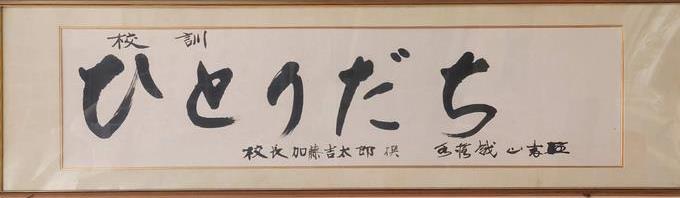 校訓
ひとりだち
校長加藤吉太郎撰